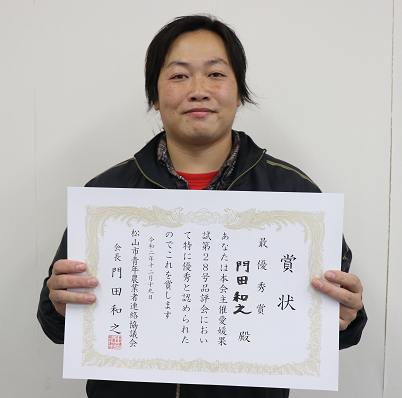 賞状
最優秀賞
門田和之 殿
あなたは本会主催愛媛果
試第28号品評会におい
て特に優秀と認められた
のでこれを賞します
令和二年十二月十九日
松山市青年農業者連絡協議会
会長 門田和之